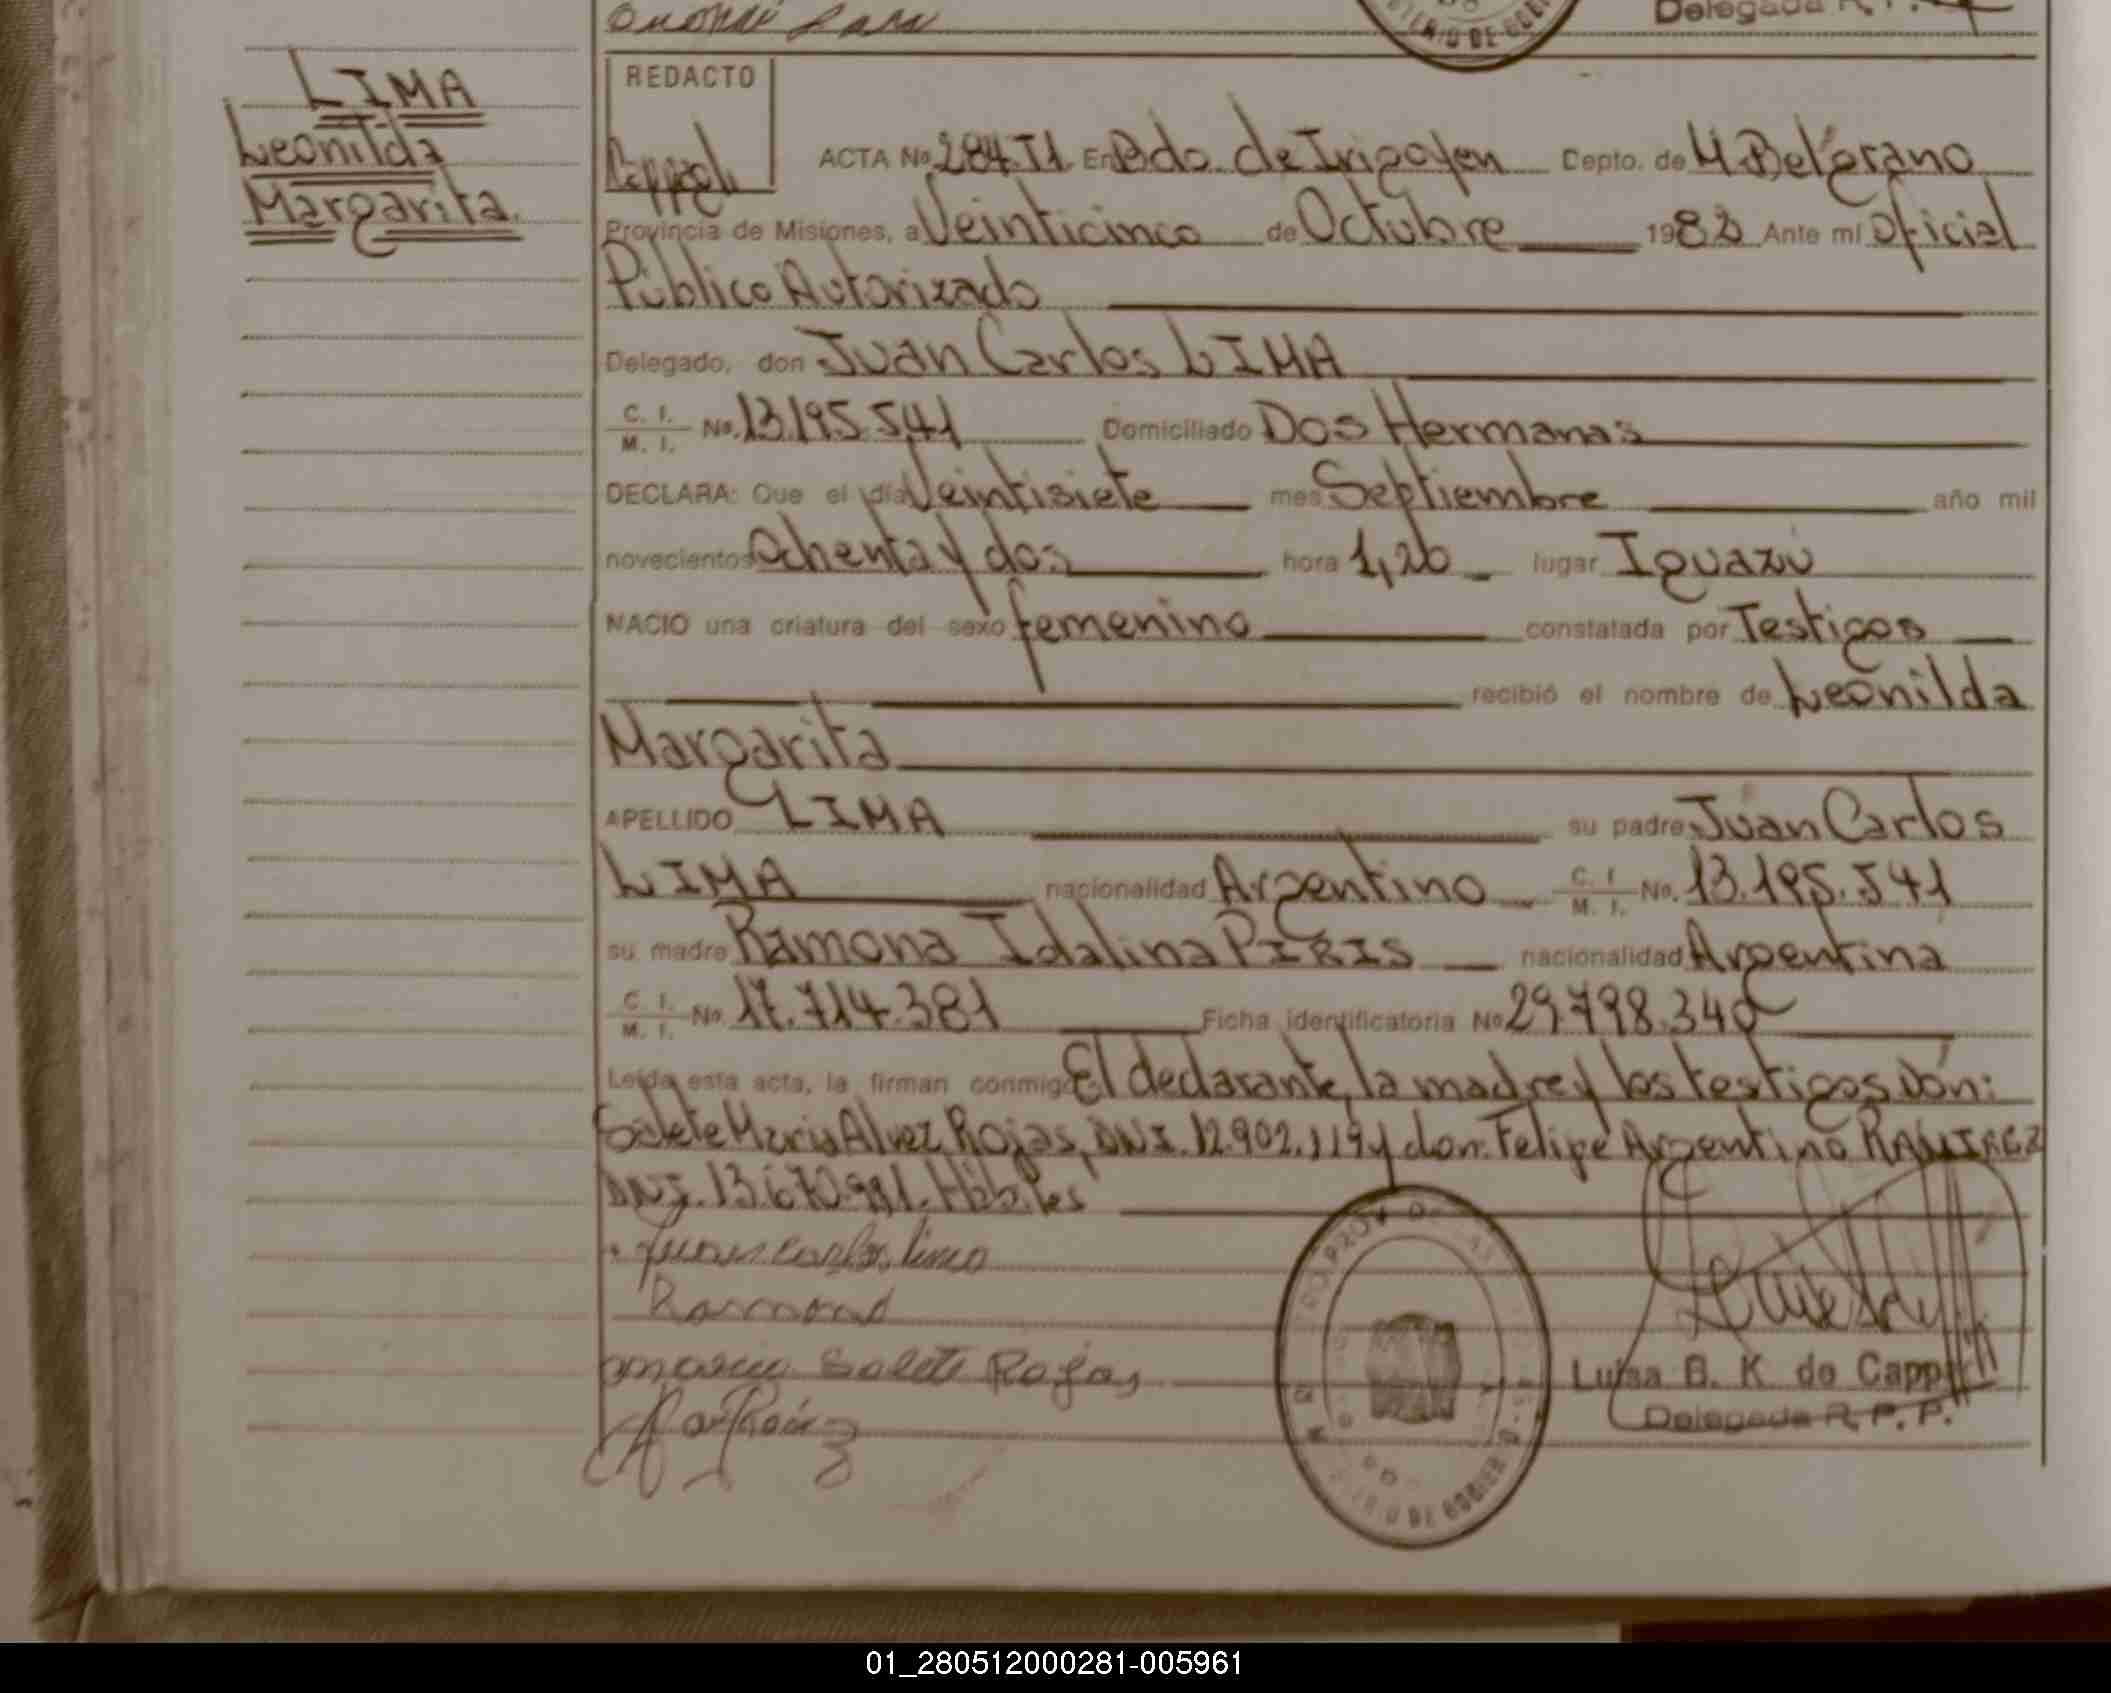 LIMA
Leonilda
Margarita.
Delegada R. P.
MINISTERIO DE GOBIERNO
REDACTO
Cappelli
ACTA No. 284.T1 En Bdo. de Irigoyen Depto. de M. Belgrano
Provincia de Misiones, a Veinticinco de Octubre 1982 Ante mí Oficial
Público Autorizado
Delegado, don Juan Carlos LIMA
C. I. M. I. No. 13.195.541 Domiciliado Dos Hermanas
DECLARA: Que el día Veintisiete mes Septiembre año mil
novecientos Ochenta y dos hora 1,20 lugar Iguazú
NACIO una criatura del sexo femenino constatada por Testigos
recibió el nombre de Leonilda
Margarita
APELLIDO LIMA su padre Juan Carlos
LIMA nacionalidad Argentino C. I. M. I. No. 13.195.541
su madre Ramona Idalina PIRIS nacionalidad Argentina
C. I. M. I. No. 17.714.381 Ficha identificatoria No 29.798.340
Leída esta acta, la firman conmigo El declarante, la madre y los testigos Dón:
Salete Maria Alvez Rojas, DNI. 12.902.119 y don: Felipe Argentino RAMIREZ
DNI. 13.670.991. Hábiles
Juan Carlos Lima
Ramona
Maria Salete Rojas
DE GOBIERNO
Luisa B. K. de Cappelli
Delegada R. P. P.
01_280512000281-005961